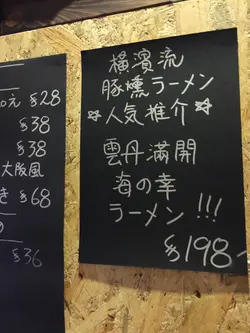 $28
$38
$38
大阪風
き $68
の
$36
横濱流
豚燻ラーメン
☆人気推介☆
雲丹満開
海の幸
ラーメン!!!
$198